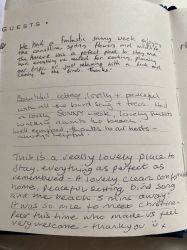 GUESTS
We had a fantastic sunny week enjoying
the coastline, spring flowers and wildlife.
The Annexe was a perfect place to stay and
had everything we needed for cooking, planning
our trips or just relaxing with a book and
to the birds. Thanks!
Beautiful cottage, lovely + peaceful
with all the bird song + trees. Had
a lovely sunny week, lovely sunsets
walking down to the beach.
Well equipped, thanks to our hosts -
always helpful!
This is a really lovely place to
stay, everything as perfect as
remembered - A lovely clean comfortable
home, peaceful setting, bird song
and the beach 5 mins away.
It was a nice to meet Christine
Peter this time who made us feel
very welcome - thankyou x